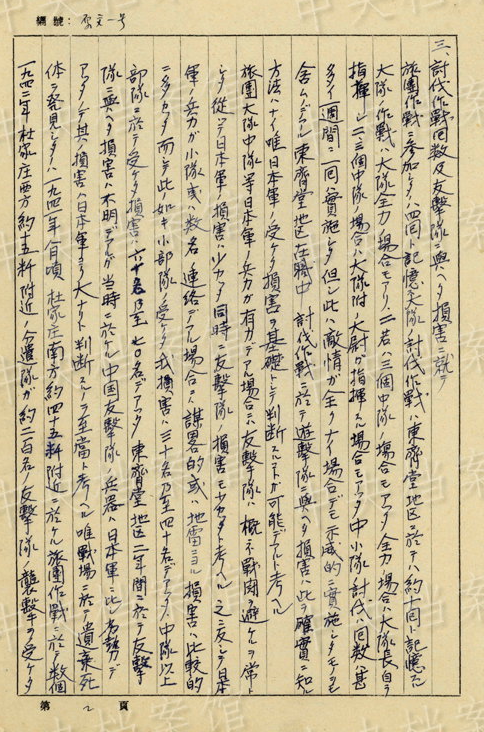 編號：
三、討伐作戰回数及反擊隊ニ與ヘタ損害ニ就テ
旅團作戰ニ参加シタノハ四回ト記憶ス 大隊ノ討伐作戰ハ東齊堂地区ニ於テハ約十回ト記憶ス
大隊ノ作戰ハ大隊全力ノ場合モアリ、二若ハ三個中隊ノ場合モアツタ 全力ノ場合ハ大隊長自ラ
指揮シ 二、三個中隊ノ場合ハ大隊附ノ大尉ガ指揮スル場合モアツタ 中小隊ノ討伐ハ回数ハ甚
多ク一週間ニ一回ハ實施シタ 但シ此ハ敵情ガ全クナイ場合デモ示威的ニ實施シタモノモ
含ムデヰル 東齊堂地区在職中 討伐作戰ニ於テ遊擊隊ニ與ヘタ損害ハ此ヲ確實ニ知ル
方法ハナイ 唯日本軍ノ受ケタ損害ヲ基礎トシテ判断スルコトガ可能デアルト考ヘル
旅團大隊中隊等日本軍ノ兵力ガ有力デアル場合ニハ反擊隊ハ概不戰闘ヲ避ケルヲ常ト
シタ 従ツテ日本軍ノ損害ハ少カツタ 同時ニ反擊隊ノ損害モ少カツタト考ヘル 之ニ反シテ日本
軍ノ兵力ガ小隊或ハ数名ノ連絡デアル場合ニハ謀畧的或ハ地雷ニヨル損害ハ比較的
ニ多カツタ 而シテ此ノ如キ小部隊ノ受ケタ損害ハ三十名乃至四十名デアツタ 中隊以上
部隊ニ於テ受ケタ損害ハ六十名乃至七〇名デアツタ 東齊堂地区二年間ニ於テ反擊
隊ニ與ヘタ損害ハ不明デアルガ當時ニ於ケル中国反擊隊ノ兵器ハ日本軍ニ比シ劣勢デ
アツタノデ其ノ損害ハ日本軍ヨリ大ナリト判断スルノヲ至當ト考ヘル 唯戰場ニ於テ遺棄死
体ヲ発見シタノハ一九四二年八月頃 杜家庄南方約四十五粁附近ニ於ケル旅團作戰ニ於テ数個
一九四二年 杜家庄西方約十五粁附近ノ分遣隊ガ約二百名ノ反擊隊ノ襲擊ヲ受ケタ
第 2 頁